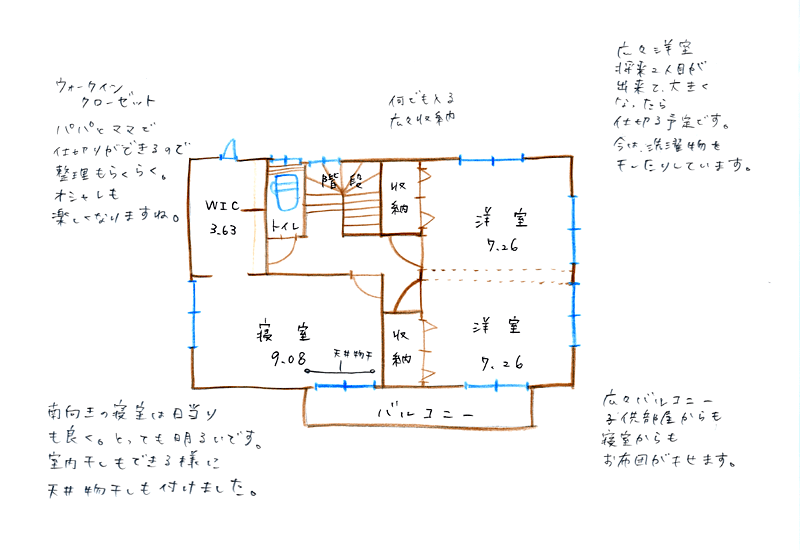 ウォークイン
クローゼット
パパとママで
仕切りができるので
整理もらくらく。
オシャレも
楽しくなりますね。
何でも入る
広々収納
広々洋室
将来2人目が
出来て、大きく
なったら
仕切る予定です。
今は、洗濯物も
干したりしています。
WIC
3.63
トイレ
階段
収納
洋室
7.26
寝室
9.08
天井物干
収納
洋室
7.26
バルコニー
南向きの寝室は日当り
も良く。とっても明るいです。
室内干しもできる様に
天井物干しも付けました。
広々バルコニー
子供部屋からも
寝室からも
お布団が干せます。